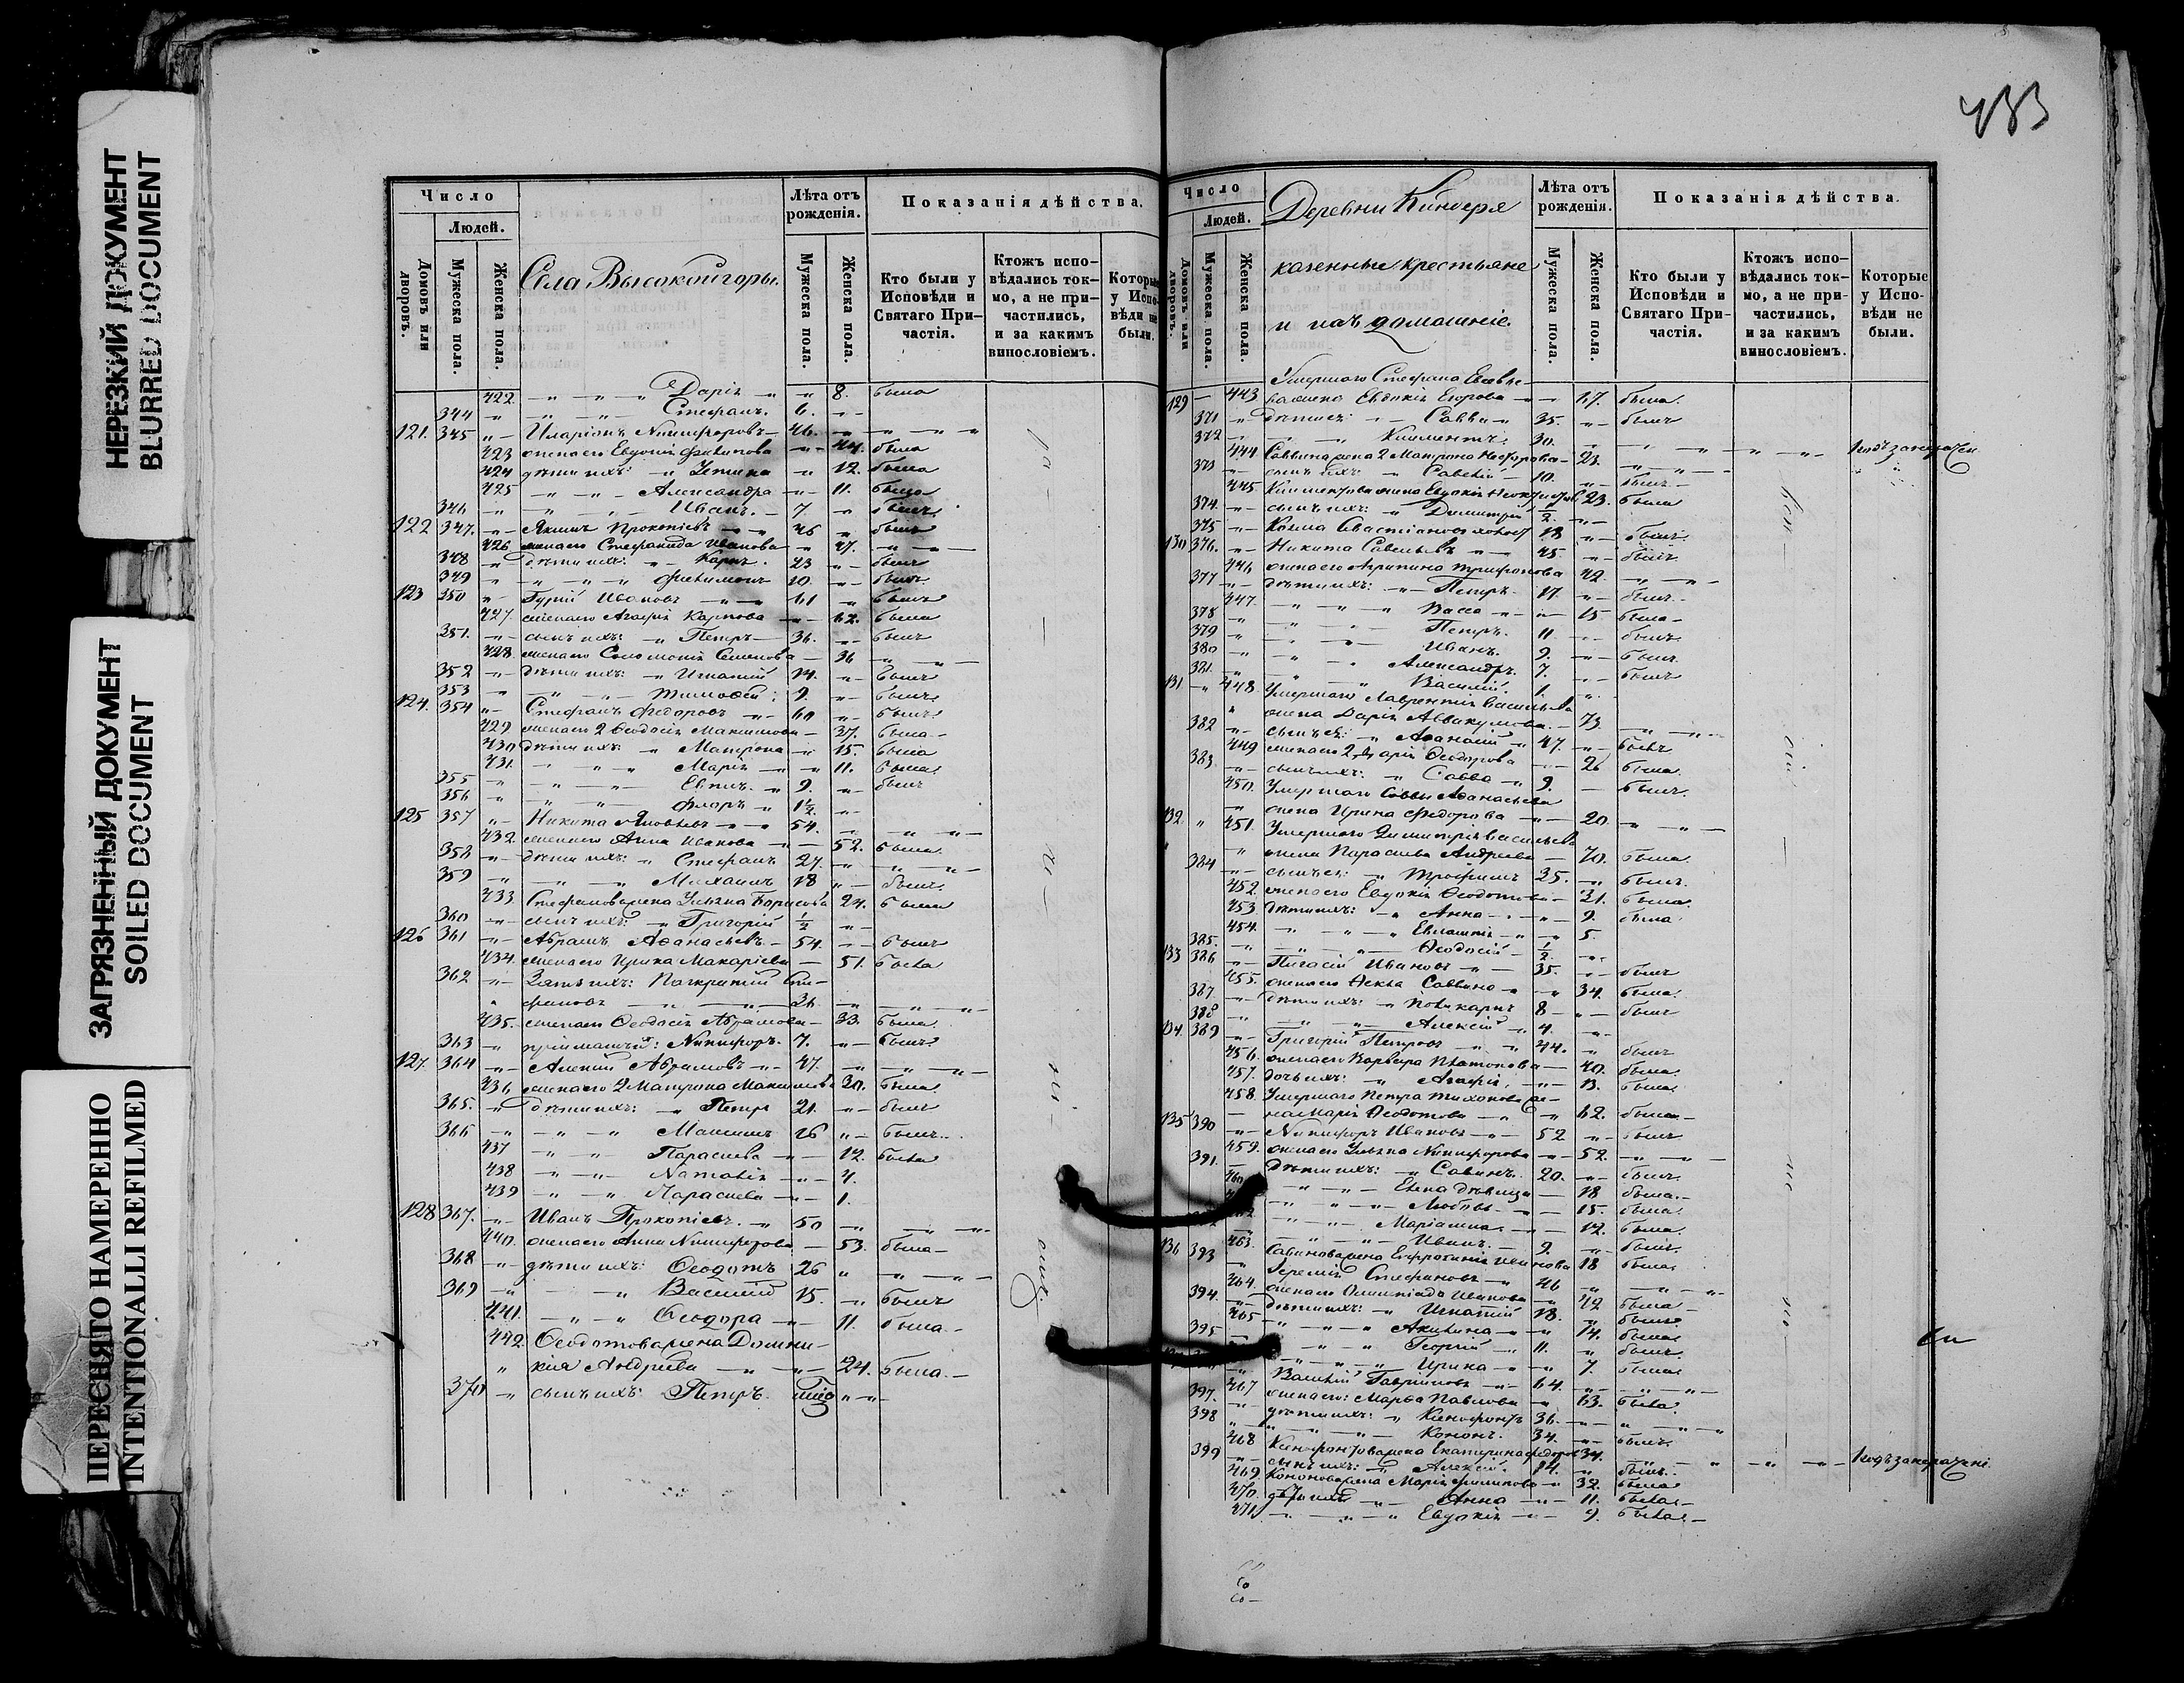 НЕРЕЗКИЙ ДОКУМЕНТ
BLURRED DOCUMENT
ЗАГРЯЗНЕННЫЙ ДОКУМЕНТ
SOILED DOCUMENT
ПЕРЕСНЯТО НАМЕРЕННО
INTENTIONALLI REFILMED
Число
Людей.
Домовъ или дворовъ.
Мужеска пола.
Женска пола.
Села Высокой горы.
Лѣта отъ рожденія.
Мужеска пола.
Женска пола.
Показанія дѣйства.
Кто были у Исповѣди и Святаго Причастія.
Ктожъ исповѣдались токмо, а не причастились, и за какимъ винословіемъ.
Которые у Исповѣди не были.
422 Дарія 8. была
344 Стефанъ. 6.
121. 345 Иларіонъ Никифоровъ 46.
423 жена его Евдокія Филипова 44. была
424 дѣти ихъ: Устина 12. была
425 Александра 11. была
346 Иванъ. 7. былъ
122 347. Якимъ Прокопіевъ 46 былъ
426 жена его Стефанида Иванова 47.
348 дѣти ихъ: Карпъ. 23 былъ
349 Филимонъ 10. былъ
123 350 Гурій Ивановъ 61 былъ
427. жена его Агафія Карпова 62. была
351. сынъ ихъ: Петръ 36. былъ
428. жена его Соломонія Семенова 36
352 дѣти ихъ: Игнатій 14. былъ
353 Тимофей 9. былъ
124. 354 Стефанъ Федоровъ 60 былъ
429 жена его 2 Феодосія Максимова 37. была
430 дѣти ихъ: Матрона 15. была
431. Марія 11. была
355 Евпил. 9. былъ
356 Флоръ 1½
125 357 Никита Яковлевъ 54.
432. жена его Анна Иванова 52. была
358 дѣти ихъ: Стефанъ 27.
359 Михаилъ 18 былъ
433. Стефанова жена Ульяна Борисова 24. была
360 сынъ ихъ: Григорій ½
126 361 Абрамъ Афанасьевъ 54. былъ
434. жена его Ирина Макаріева 51. была
362 Зять ихъ: Панкратій Сте-
фановъ 36
435. жена его Феодосія Абрамова 33. была
363 пріимышъ: Никифоръ. 7. былъ
127. 364 Алексій Абрамовъ 47.
436. жена его 2 Матрона Максимова 30. была
365. дѣти ихъ: Петръ 21. былъ
366 Максимъ 16 былъ
437 Параскева 12. была
438 Наталія 4.
439 Параскева 1.
128 367. Иванъ Прокопіевъ. 50
440. жена его Анна Никифорова 53. была
368 дѣти ихъ: Феодотъ 26
369 Василій 15. былъ
441. Феодора 11. была
442. Феодотова жена Домни-
кія Андреева 24. была
370 сынъ ихъ: Петръ.
433
Число
Людей.
Домовъ или дворовъ.
Мужеска пола.
Женска пола.
Деревни Киндеря
казенные крестьяне
и ихъ домашніе.
Лѣта отъ рожденія.
Мужеска пола.
Женска пола.
Показанія дѣйства.
Кто были у Исповѣди и Святаго Причастія.
Ктожъ исповѣдались токмо, а не причастились, и за какимъ винословіемъ.
Которые у Исповѣди не были.
Умершаго Стефана
129 443 жена Евдокія Егорова 17. была
371 дѣти ея: Савва 35. былъ
372 Климентъ. 30.
444 Саввина жена 2 Матрона 23.
373 сынъ ихъ: Савелій 10. былъ
445. Климентова жена Евдокія 23. была
374. сынъ ихъ: Димитрій ½
375 Козма 18 былъ
130 376. Никита Савельевъ 45 былъ
446 жена его Агрипина Трифонова 42
377 дѣти ихъ: Петръ. 17. былъ
447. Васса 15 была
378 Петръ. 11. былъ
379 Иванъ. 9. былъ
380 Александръ. 7. былъ
381. Василій. 1.
131 448 Умершаго Лаврентія Васильева
жена Дарія Аввакумова 73.
382 сынъ ея: Афанасій 47. былъ
449 жена его 2 Дарія Федорова 26 была
383. сынъ ихъ: Савва 9. былъ
450. Умершаго Саввы Афанасьева
жена Ирина Федорова 20.
132 451. Умершаго Димитрія Васильева
жена Параскева Андреева 70. была
384 сынъ ея: Трофимъ 35. былъ
452. жена его Евдокія Феодотова 31. была
453. дѣти ихъ: Анна 9. была
454. Евлампія 5.
385. Феодосій ½
133 386 Пигасій Ивановъ 35. былъ
455. жена его Фекла Саввина 34. была
387. дѣти ихъ: Поликарпъ 8 былъ
388 Алексій 4.
134 389 Григорій Петровъ 44. былъ
456. жена его Варвара Платонова 40. была
457. дочь ихъ: Агафія 13. была
458. Умершаго Петра Тихонова же-
на Марія Феодотова 62. была
135 390 Никифоръ Ивановъ 52 былъ
459. жена его Ульяна Никифорова 52.
391. дѣти ихъ: Савинъ. 20. былъ
460 Елена дѣвица 18 была
Любовь 15. была
Маріамна 12. была
Иванъ. 9. былъ
463. Савинова жена Евфросинія Иванова 18 была
136 393 Іеремія Стефановъ 46
464. жена его Олимпіада Иванова 42 была
394. дѣти ихъ: Игнатій 18. былъ
465 Акилина 14. была
395 Георгій 11. былъ
Ирина 7. была
Василій Гавриловъ 64.
467 жена его: Марфа Павлова 63. была
397. дѣти ихъ: Ксенофонтъ 36.
398 Кононъ. 34. былъ
468 Ксенофонтова жена Екатерина Федорова 34.
399 сынъ ихъ: Алексій. 14. былъ
469. Кононова жена Марія Филипова 32. была
470. дѣти ихъ Анна 11. была
471. Евдокія 9. была